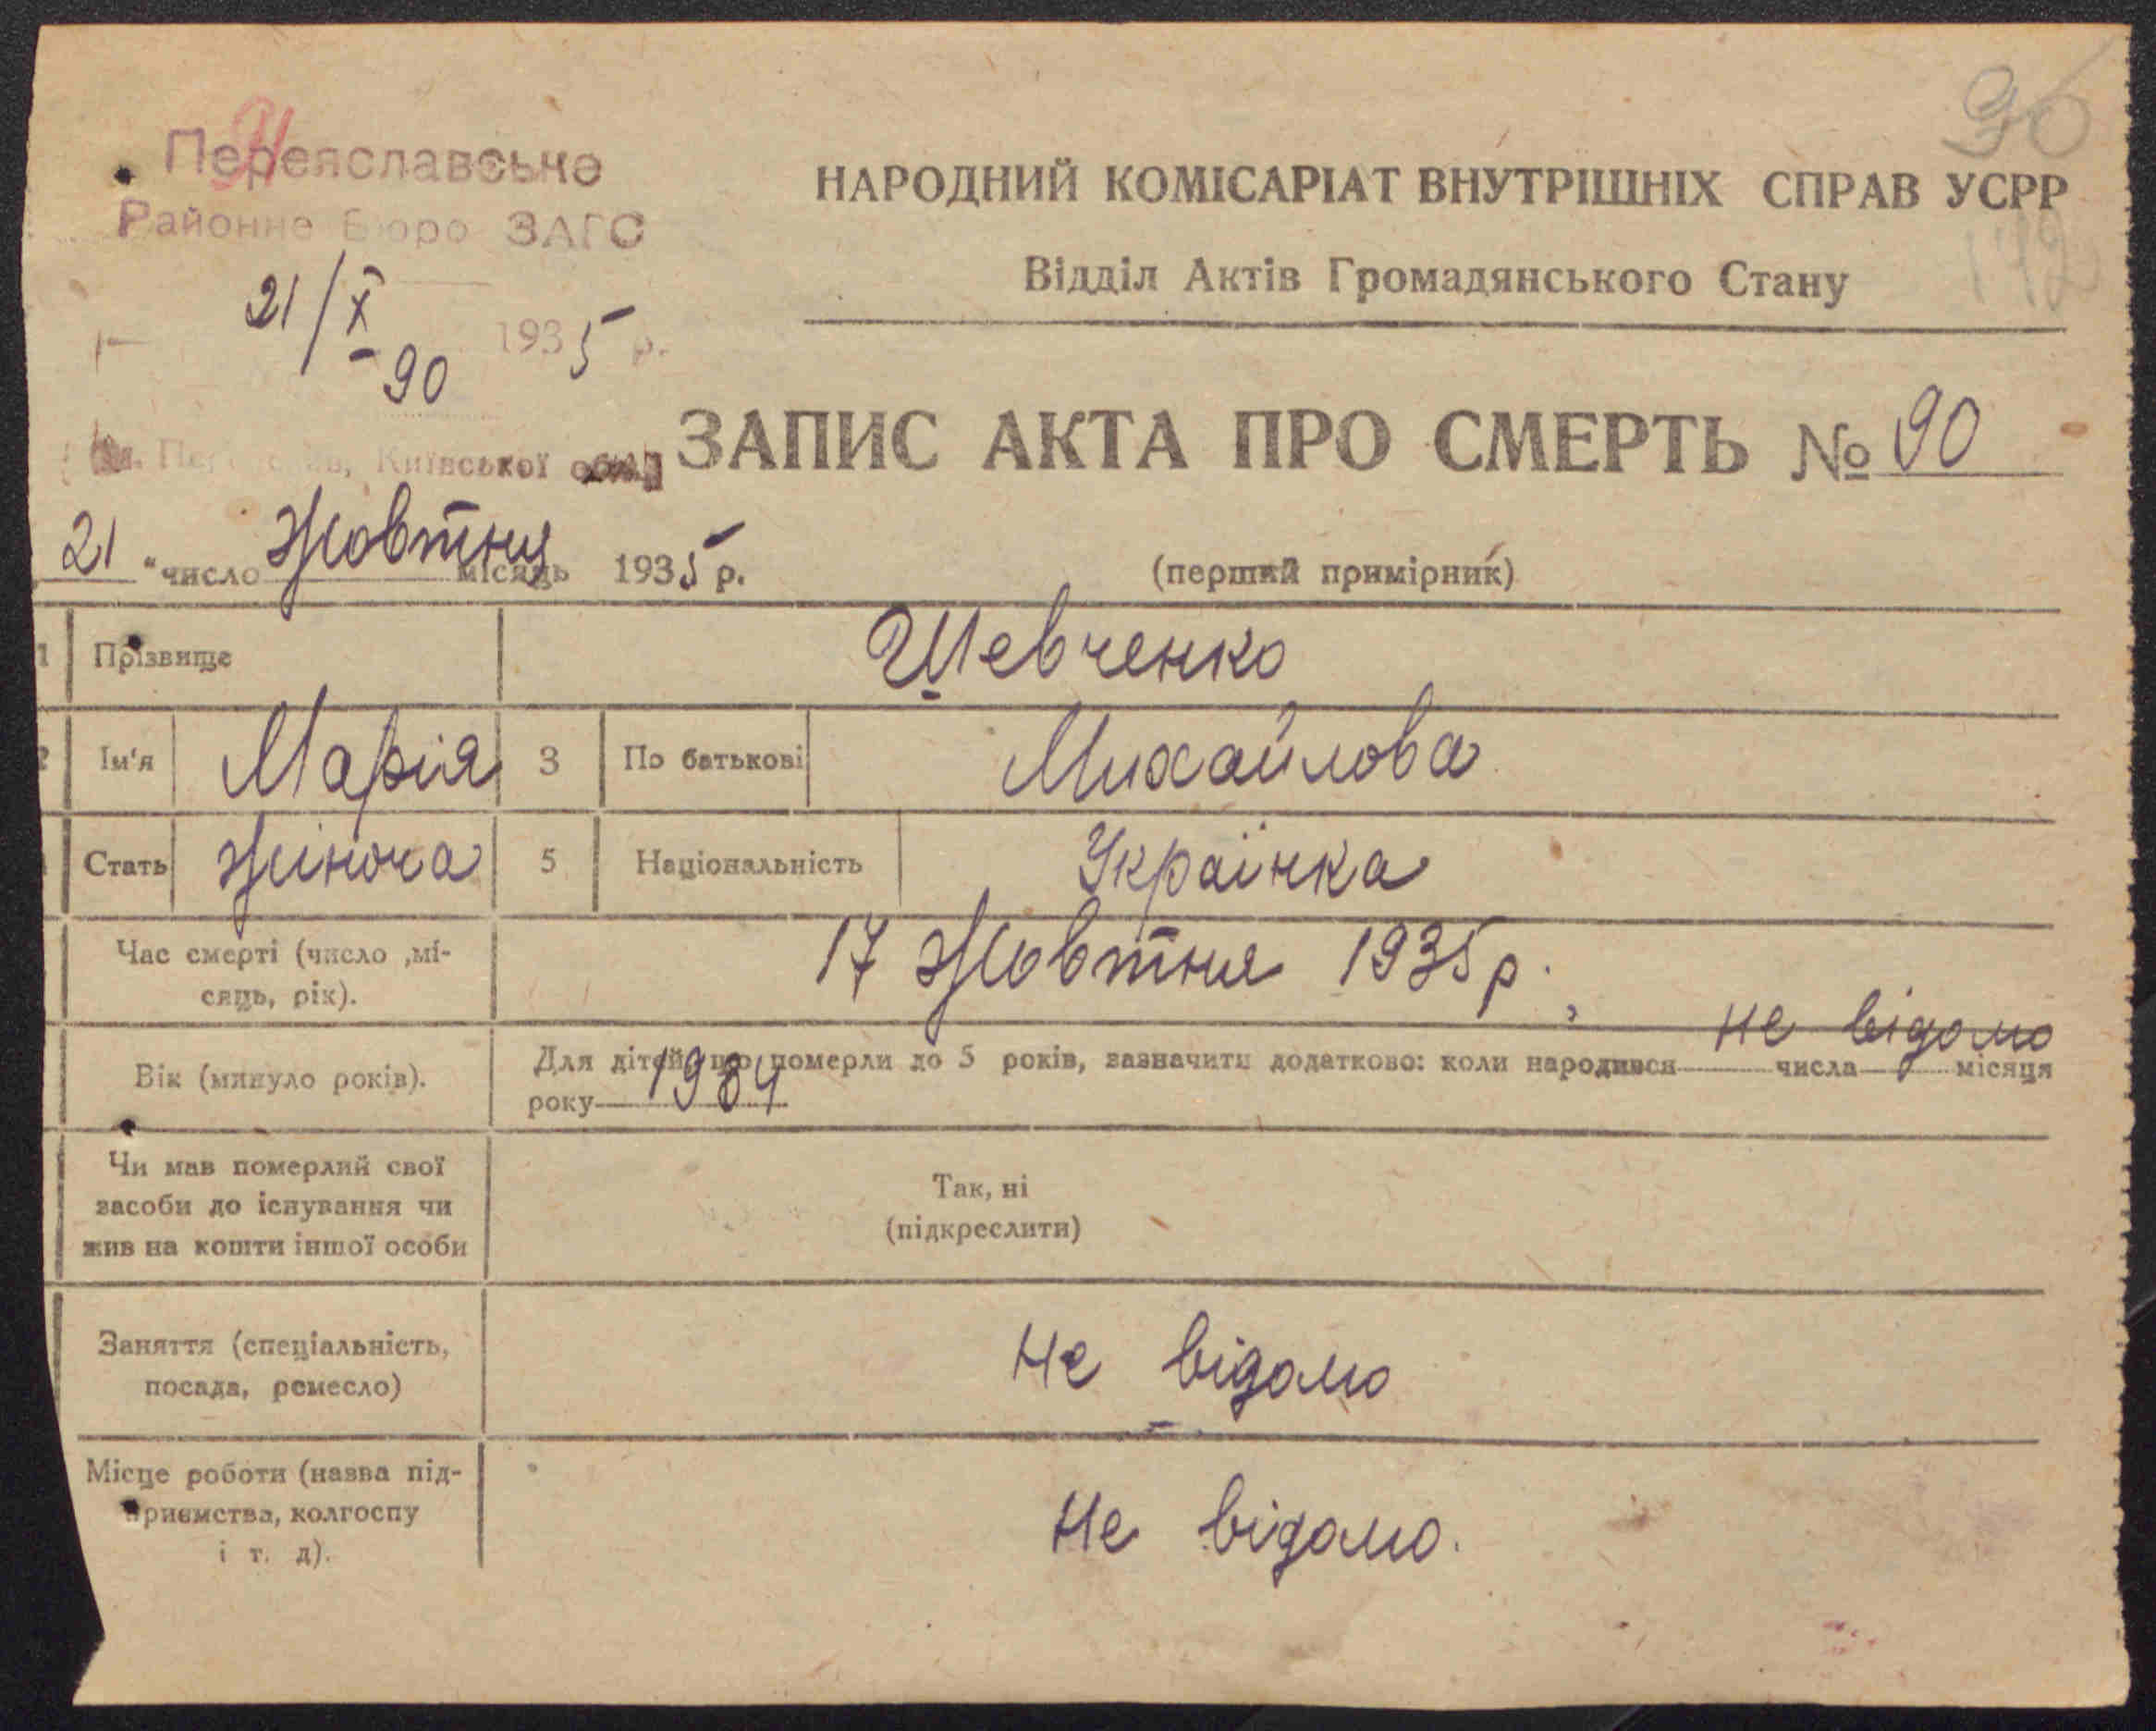 90
Переяславське
Районне Бюро ЗАГС
НАРОДНИЙ КОМІСАРІАТ ВНУТРІШНІХ СПРАВ УСРР
142
Відділ Актів Громадянського Стану
21/X 1935 р.
90
Київської обл.
ЗАПИС АКТА ПРО СМЕРТЬ № 90
21 "число Жовтня місяць 1935 р.
(перший примірник)
1 Прізвище Шевченко
Ім'я Марія 3 По батькові Михайлова
Стать жіноча 5 Національність Українка
Час смерті (число ,мі-
сяць, рік).
17 Жовтня 1935 р.
не відомо
Вік (минуло років).
Для дітей, що померли до 5 років, зазначити додатково: коли народився числа місяця
року 1934
Чи мав померлий свої
засоби до існування чи
жив на кошти іншої особи
Так, ні
(підкреслити)
Заняття (спеціальність,
посада, ремесло)
Не відомо
Місце роботи (назва під-
приємства, колгоспу
і т. д).
Не відомо.